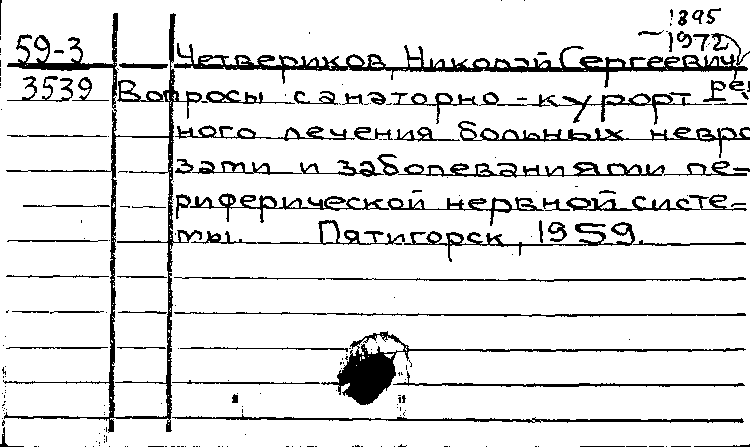 1895
59-3 Четвериков, Николай Сергеевич 1972
3539 Вопросы санаторно-курорт
ного лечения больных невро
зами и заболеваниями пе=
риферической нервной систе=
мы. Пятигорск, 1959.